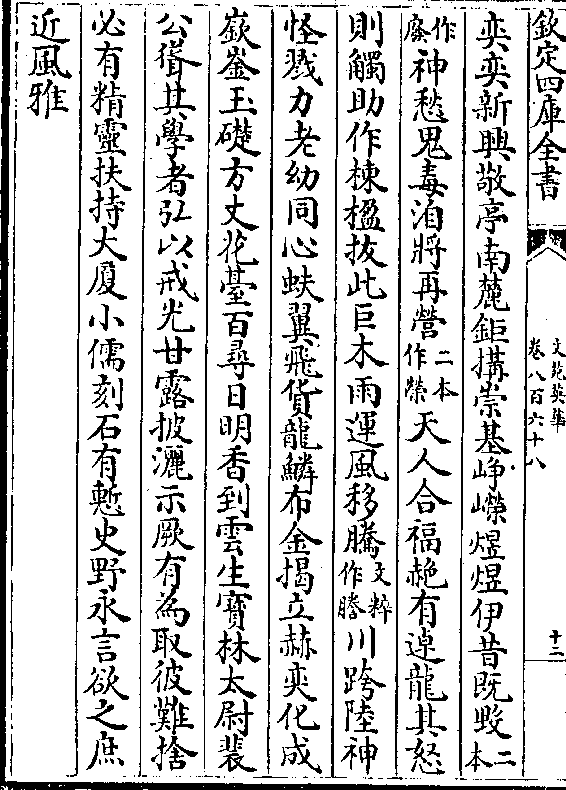 欽定四庫全書
文苑英華
卷八百六十八
十三
奕奕新興敬亭南麓鉅搆崇基崢嶸煜煜伊昔既毀二本
作廢神愁鬼毒洎將再營二本作榮天人合福赩有逴龍其怒
則觸助作棟楹拔此巨木雨運風移騰文粹作謄川跨陸神
怪戮力老幼同心蚨翼飛貨龍鱗布金揭立赫奕化成
嶔崟玉礎方丈花臺百尋日明香到雲生寶林太尉裴
公循其學者弘以戒光甘露披灑示厥有為取彼難捨
必有精靈扶持大廈小儒刻石有慙史野永言欲之庶
近風雅